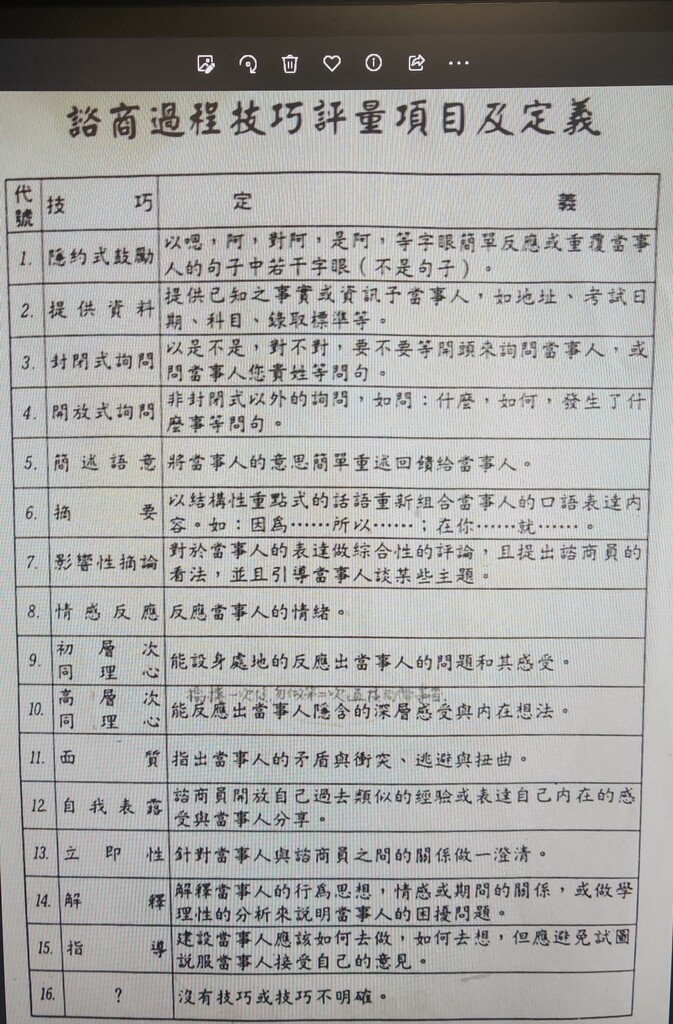 諮商過程技巧評量項目及定義
代號 技巧 定義
1. 隱約式鼓勵 以嗯，阿，對阿，是阿，等字眼簡單反應或重覆當事
人的句子中若干字眼（不是句子）。
2. 提供資料 提供已知之事實或資訊予當事人，如地址、考試日
期、科目、錄取標準等。
3. 封閉式詢問 以是不是，對不對，要不要等開頭來詢問當事人，或
問當事人您貴姓等問句。
4. 開放式詢問 非封閉式以外的詢問，如問：什麼，如何，發生了什
麼事等問句。
5. 簡述語意 將當事人的意思簡單重述回饋給當事人。
6. 摘要 以結構性重點式的話語重新組合當事人的口語表達內
容。如：因為……所以……；在你……就……。
7. 影響性摘論 對於當事人的表達做綜合性的評論，且提出諮商員的
看法，並且引導當事人談某些主題。
8. 情感反應 反應當事人的情緒。
9. 初層次同理心 能設身處地的反應出當事人的問題和其感受。
10. 高層次同理心 能反應出當事人隱含的深層感受與內在想法。
11. 面質 指出當事人的矛盾與衝突、逃避與扭曲。
12. 自我表露 諮商員開放自己過去類似的經驗或表達自己內在的感
受與當事人分享。
13. 立即性 針對當事人與諮商員之間的關係做一澄清。
14. 解釋 解釋當事人的行為思想，情感或期間的關係，或做學
理性的分析來說明當事人的困擾問題。
15. 指導 建設當事人應該如何去做，如何去想，但應避免試圖
說服當事人接受自己的意見。
16. ？ 沒有技巧或技巧不明確。